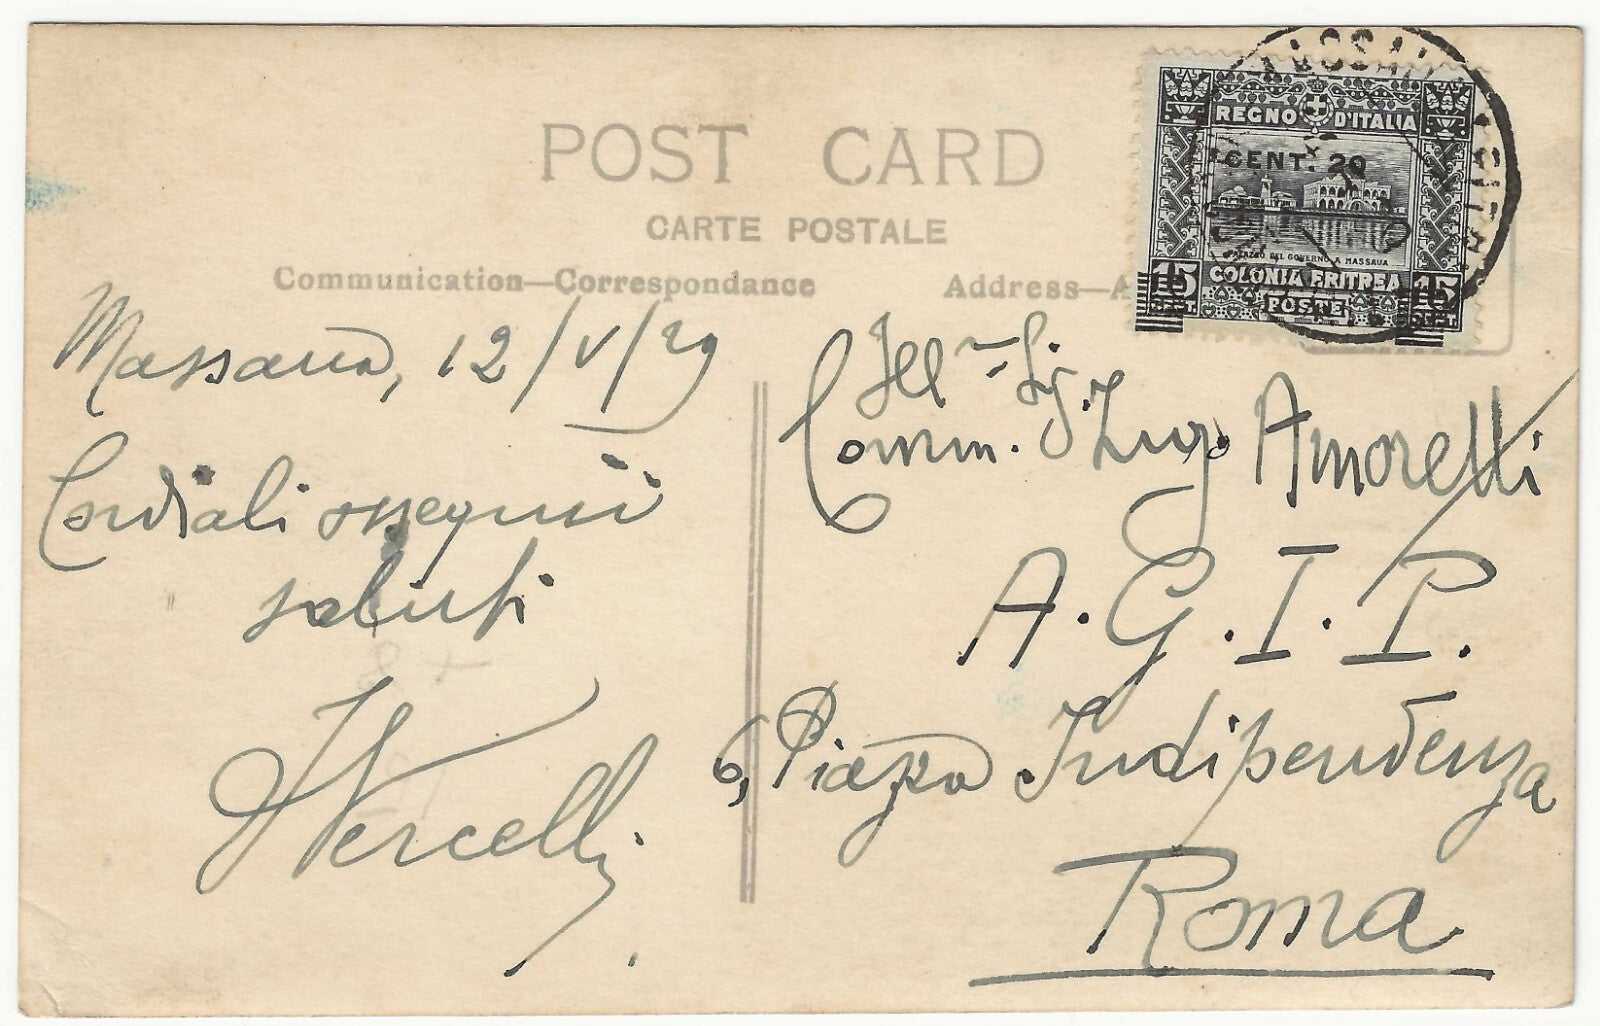 POST CARD
CARTE POSTALE
Communication—Correspondance
Address—A
REGNO D'ITALIA
CENT. 20
PALAZZO DEL GOVERNO A MASSAUA
15 COLONIA ERITREA 15
POSTE
Massaua, 12/V/29
Cordiali ossequi
saluti
Vercelli
Ill Sig.
Comm. Amoretti
A.G.I.P.
6, Piazza Indipendenza
Roma